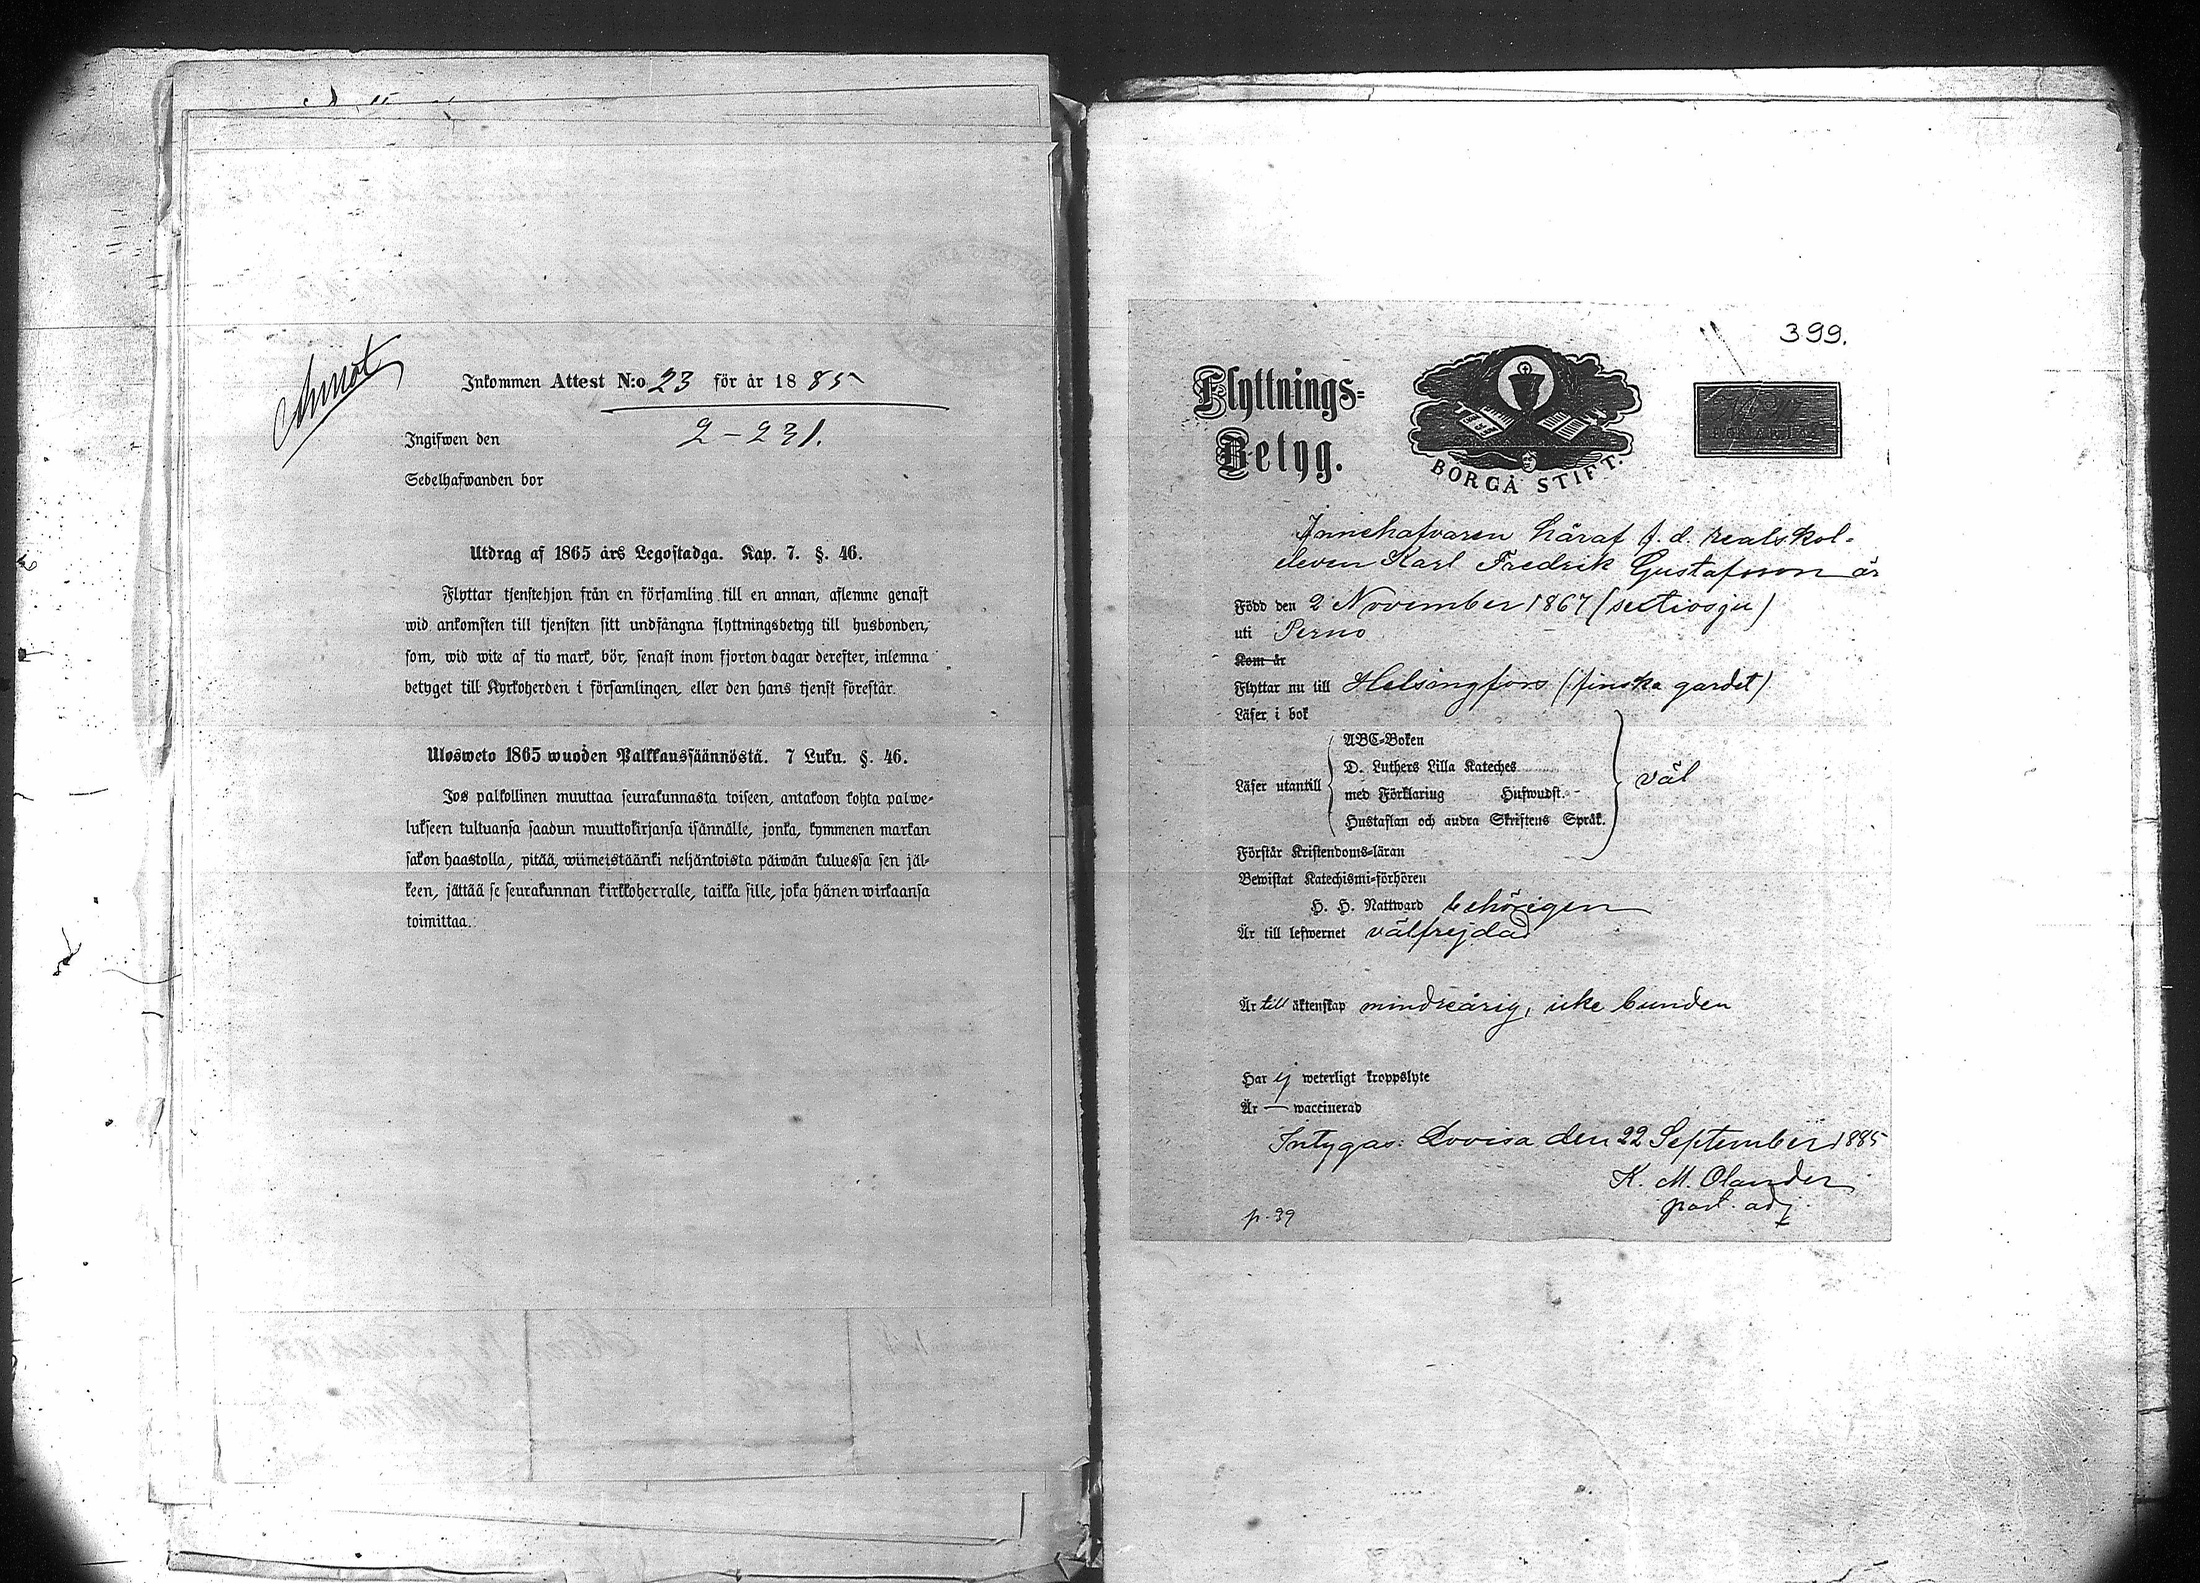 Inkommen Attest N:o 23 för år 1885
2-231.
Ingifwen den
Sedelhafwanden bor
Utdrag af 1865 års Legostadga. Kap. 7. §. 46.
Flyttar tjenstehjon från en församling till en annan, aflemne genast
wid ankomsten till tjensten sitt undfångna flyttningsbetyg till husbonden,
som, wid wite af tio mark, bör, senast inom fjorton dagar derefter, inlemna
betyget till Kyrkoherden i församlingen, eller den hans tjenst förestår.
Ulosweto 1865 wuoden Palkkaussäännöstä. 7 Luku. §. 46.
Jos palkollinen muuttaa seurakunnasta toiseen, antakoon kohta palwe-
lukseen tultuansa saadun muuttokirjansa isännälle, jonka, kymmenen markan
sakon haastolla, pitää, wiimeistäänki neljäntoista päiwän kuluessa sen jäl-
keen, jättää se seurakunnan kirkkoherralle, taikka sille, joka hänen wirkaansa
toimittaa.
399.
Flyttnings-
Betyg.
BORGÅ STIFT.
Innehafvaren häraf f. d. realskol-
eleven Karl Fredrik Gustafsson är
Född den 2 November 1867 (sextiosju)
uti Perno
Kom är
Flyttar nu till Helsingfors (finska gardet)
Läser i bok
ABC-Boken
D. Luthers Lilla Kateches
Läser utantill med Förklaring Hufwudst. väl
Hustaflan och andra Skriftens Språk.
Förstår Kristendoms-läran
Bewistat Katechismi-förhören
H. H. Nattward behörigen
Är till lefwernet välfrejdad
Är till äktenskap mindreårig, icke bunden
Har ej weterligt kroppslyte
Är — waccinerad
Intygas: Lovisa den 22 September 1885
K. M. Olander
past. adj.
p. 39